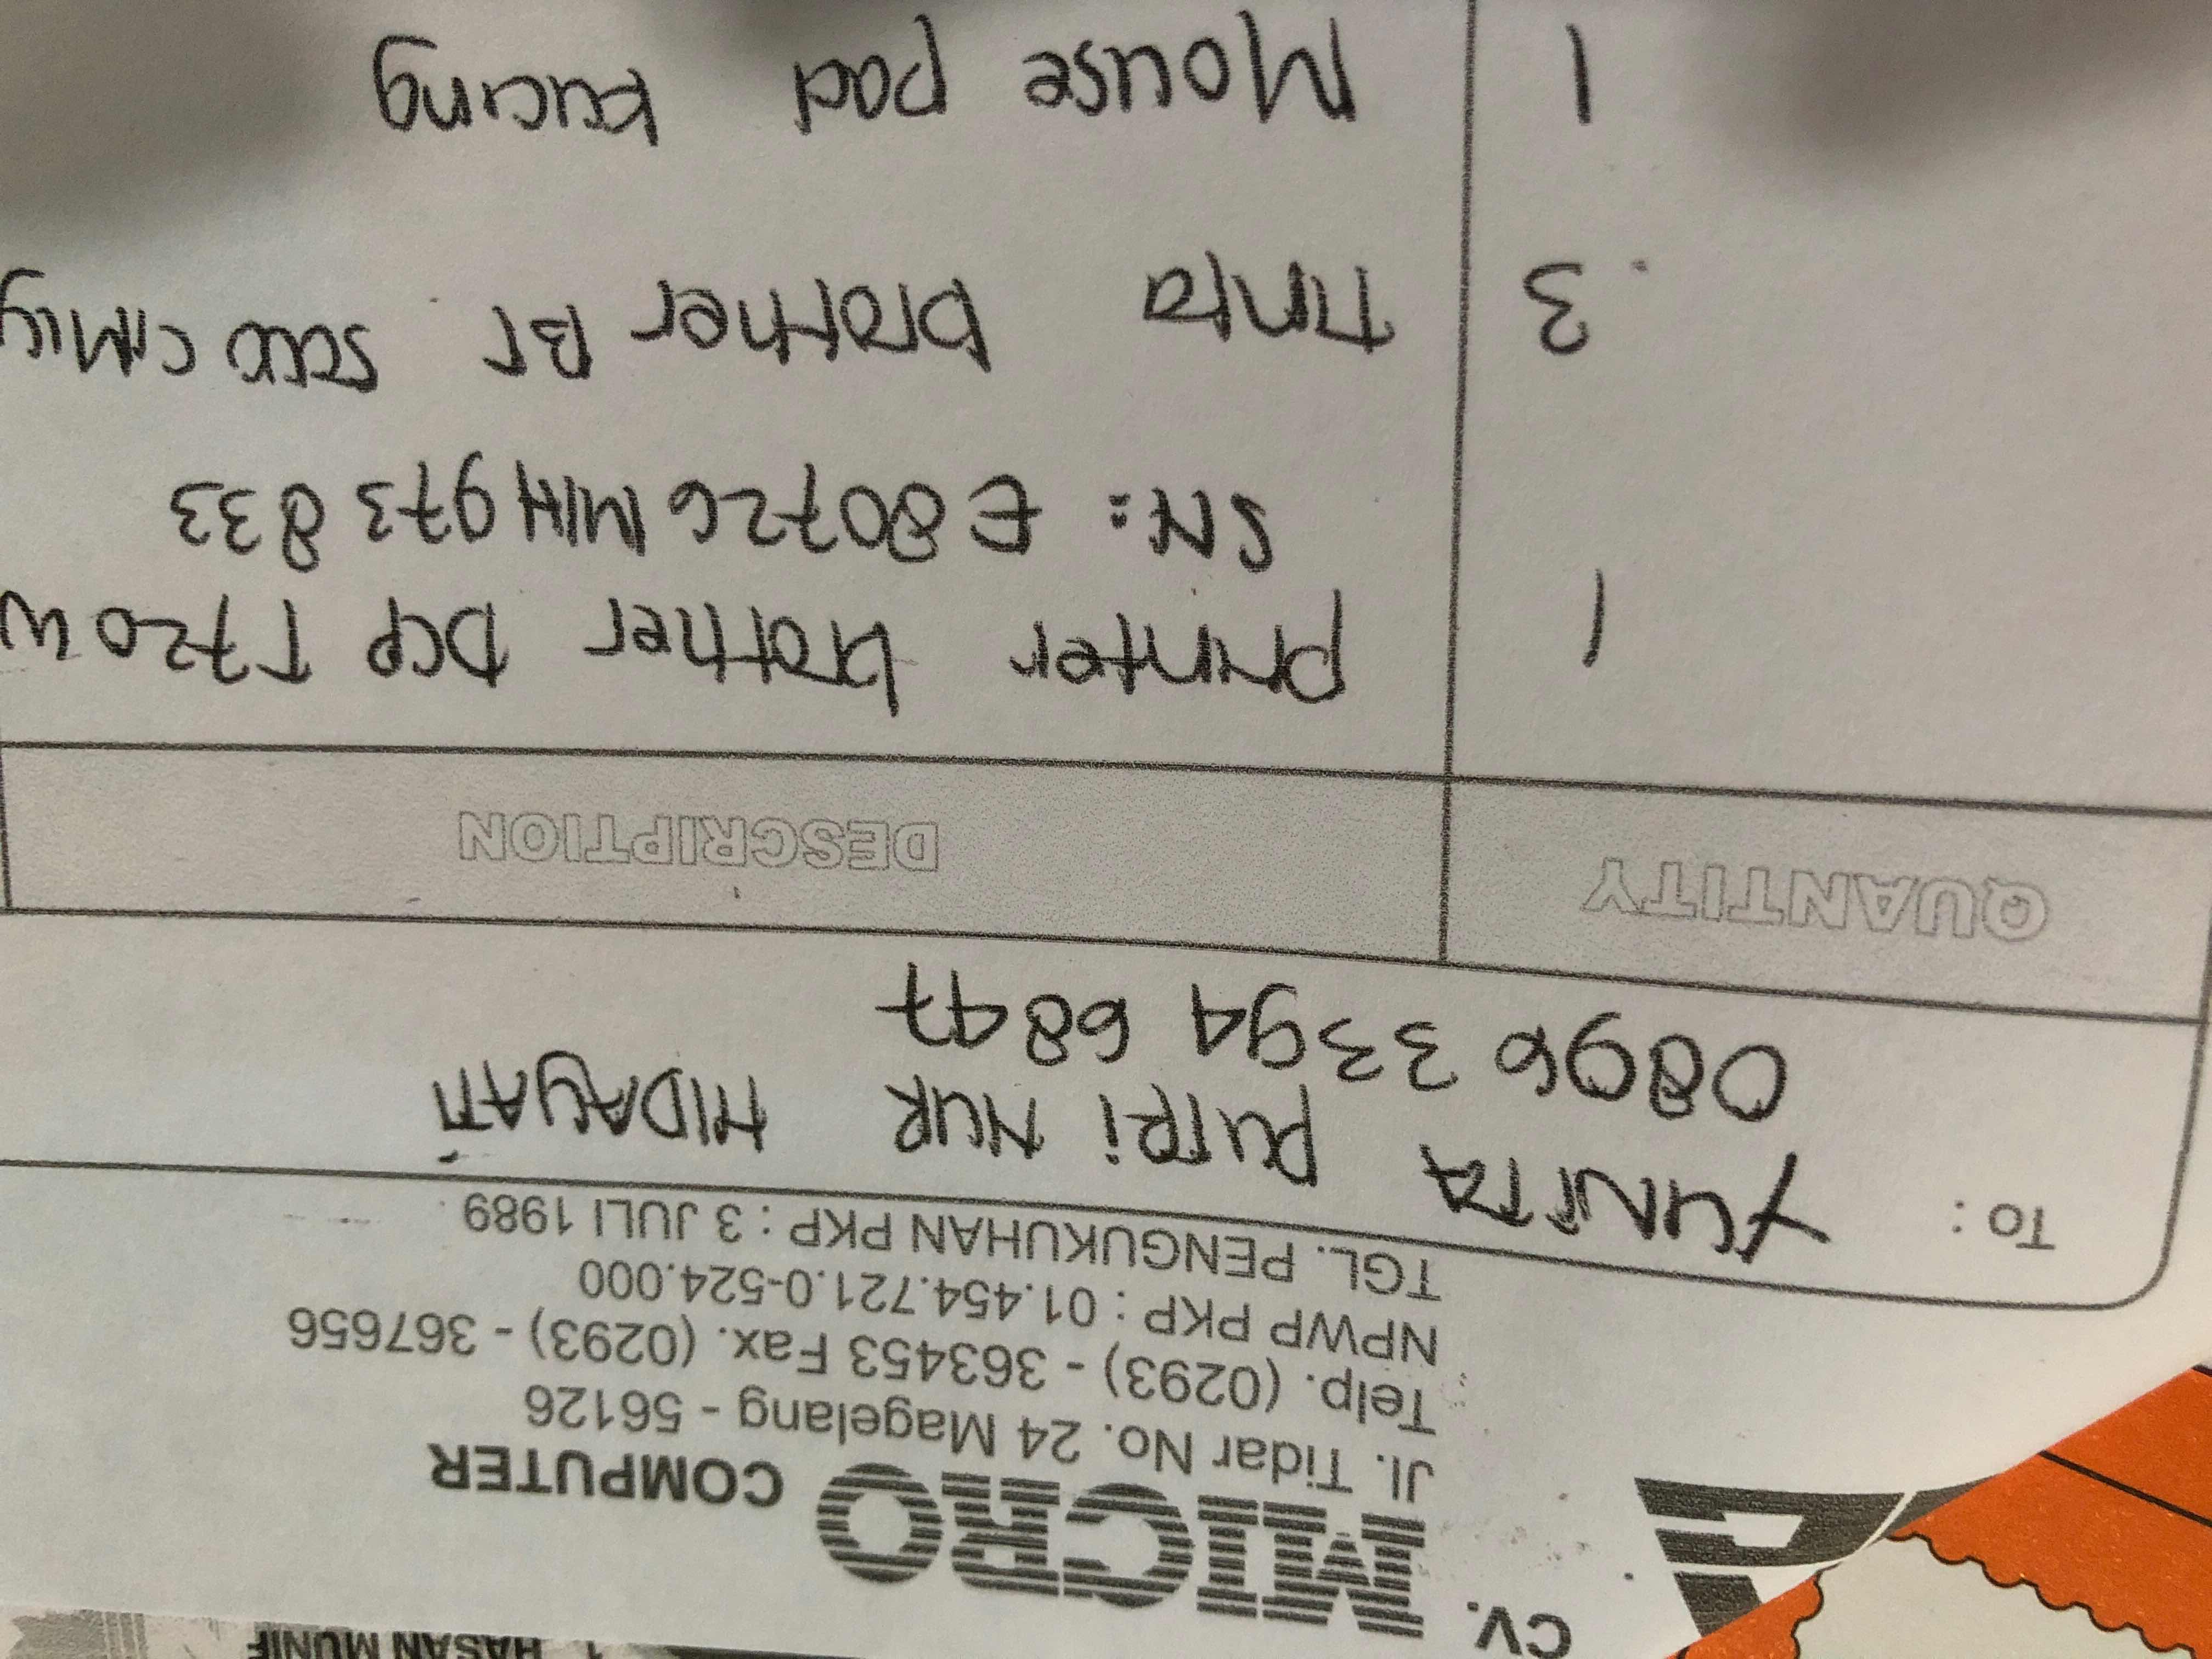 HASAN MUNIF
CV. MICRO COMPUTER
Jl. Tidar No. 24 Magelang - 56126
Telp. (0293) - 363453 Fax. (0293) - 367656
NPWP PKP : 01.454.721.0-524.000
TGL. PENGUKUHAN PKP : 3 JULI 1989
To : YUNITA PUTRI NUR HIDAYATI
0896 3394 6897
QUANTITY DESCRIPTION
1 printer brother DCP T720W
SN: E80726M1H973833
3 Tinta brother BT 5000 C/M/Y
1 Mouse pad kucing